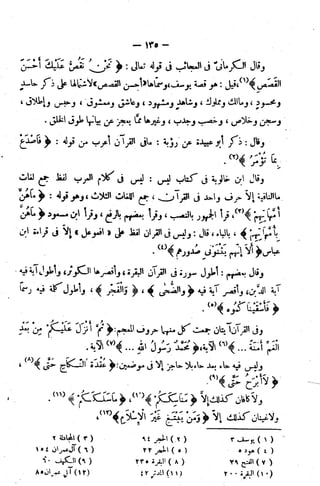 — ١٣٥ —
وقال الكرمانيّ في العجائب في قوله تعالى : ﴿ نَحْنُ نَقُصُّ عَلَيْكَ أَحْسَنَ
الْقَصَصِ ﴾(١)،قيل : هو قصة يوسف،وسمّاها﴿أحسن القصص﴾لاشتمالها على ذكر حاسدٍ
ومحسودٍ ، ومالك ومملوك ، وشاهدٍ ومشهود ، وعاشق ومعشوق ، وحبس وإطلاق ،
وسجن وخلاص ، وخصب وجدب ، وغيرها ممّا يعجز عن بيانها طوق الخلق .
وقال : ذكر أبو عبيدة عن رؤبة : مافي القرآن أعرب من قوله : ﴿ فَاصْدَعْ
بِمَا تُؤْمَرُ ﴾(٢).
وقال ابن خالويه في كتاب ليس : ليس في كلام العرب لفظ جمع لغات
ما النافية إلّا حرف واحد في القرآن ، جمع اللغات الثلاث،وهو قوله : ﴿ مَاهُنَّ
أُمَّهَاتِهِمْ ﴾(٣)،قرأ الجمهور بالنصب ، وقرأ بعضهم بالرفع ، وقرأ ابن مسعود ﴿ مَاهُنَّ
بِأُمَّهَاتِهِمْ ﴾ ، بالباء ، قال : وليس في القرآن لفظ على « افعوعل » إلّا في قراءة ابن
عباس﴿ أَلَا إِنَّهُمْ يَثْنَوْنِي صُدُورُهُمْ ﴾(٤).
وقال بعضهم : أطول سورة في القرآن البقرة ، وأقصرها الكوثر ، وأطول آية فيه
آية الدَّين، وأقصر آية فيه ﴿ وَالضُّحَى ﴾ ، ﴿ وَالْفَجْرِ ﴾ ، وأطول كلمة فيه رسمًا
﴿ فَأَسْقَيْنَاكُمُوهُ ﴾(٥).
وفي القرآن آيتان جمعت كل منهما حروف المعجم:﴿ ثُمَّ أَنْزَلَ عَلَيْكُمْ مِنْ بَعْدِ
الْغَمِّ أَمَنَةً ... ﴾(٦) الآية،﴿ مُحَمَّدٌ رَسُولُ اللهِ ... ﴾(٧) الآية.
وليس فيه حاء بعد حاءٍ بلا حاجز إلّا في موضعين: ﴿ عُقْدَةَ النِّكَاحِ حَتَّى ﴾(٨)،
﴿ لَا أَبْرَحُ حَتَّى ﴾(٩).
ولا كافان كذلك إلّا ﴿ مَنَاسِكَكُمْ ﴾(١٠)، ﴿ مَا سَلَكَكُمْ ﴾(١١).
ولا غينان كذلك إلّا ﴿ وَمَنْ يَبْتَغِ غَيْرَ الْإِسْلَامِ ﴾(١٢).
(١) يوسف ٣ (٢) الحجر ٩٤ (٣) المجادلة ٢
(٤) هود ٥ (٥) الحجر ٢٢ (٦) آل عمران ١٥٤
(٧) الفتح ٢٩ (٨) البقرة ٢٣٥ (٩) الكهف ٦٠
(١٠) البقرة ٢٠٠ (١١) المدثر ٤٢ (١٢) آل عمران ٨٥